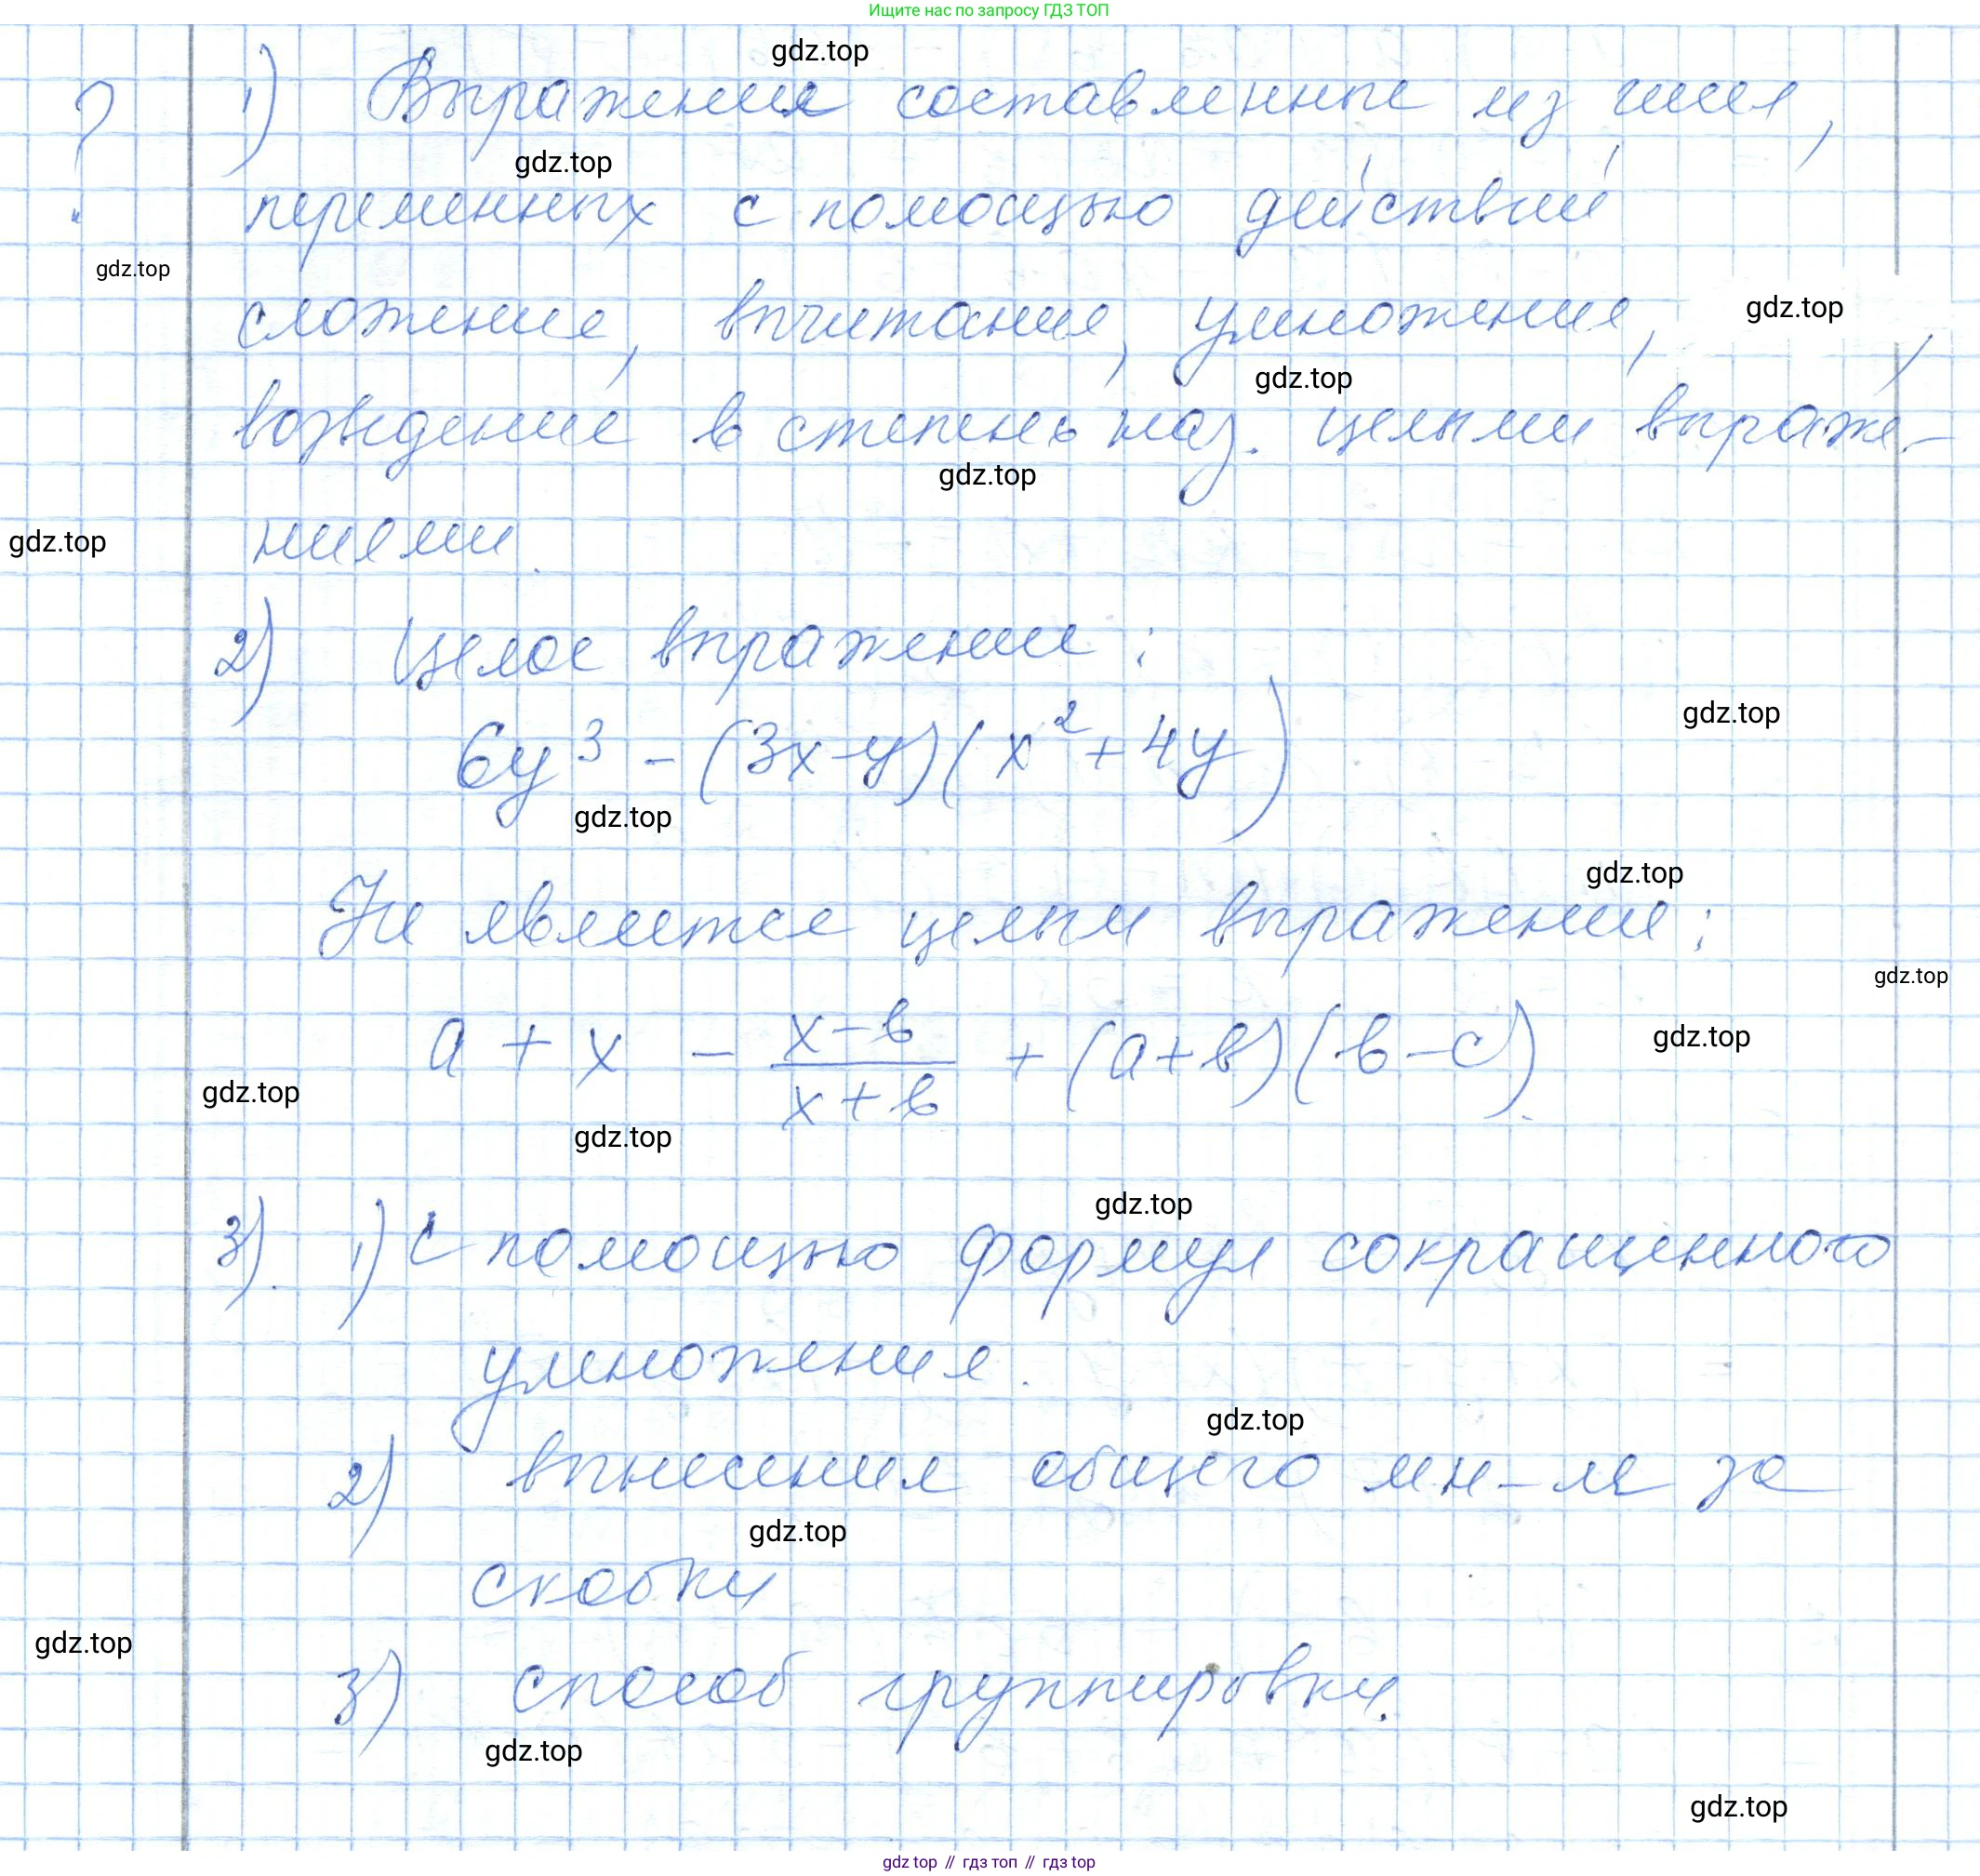 Ищите нас по запросу ГДЗ ТОП
gdz.top
? 1) Выражения составленные из чисел,
gdz.top
переменных с помощью действий
gdz.top
сложение, вычитание, умножение, gdz.top ,
gdz.top
возведение в степень наз. целыми выраже-
gdz.top
gdz.top ниями.
2) Целое выражение:
gdz.top
6y³ - (3x-y)(x²+4y)
gdz.top
gdz.top
Не является целым выражение:
gdz.top
a + x - \frac{x-b}{x+b} + (a+b)(b-c).
gdz.top
gdz.top
gdz.top
gdz.top
3). 1) С помощью формул сокращенного
умножения.
gdz.top
2) вынесения общего мн-ля за
gdz.top
скобки
gdz.top
3) способ группировки.
gdz.top
gdz.top
gdz top // гдз топ // гдз top